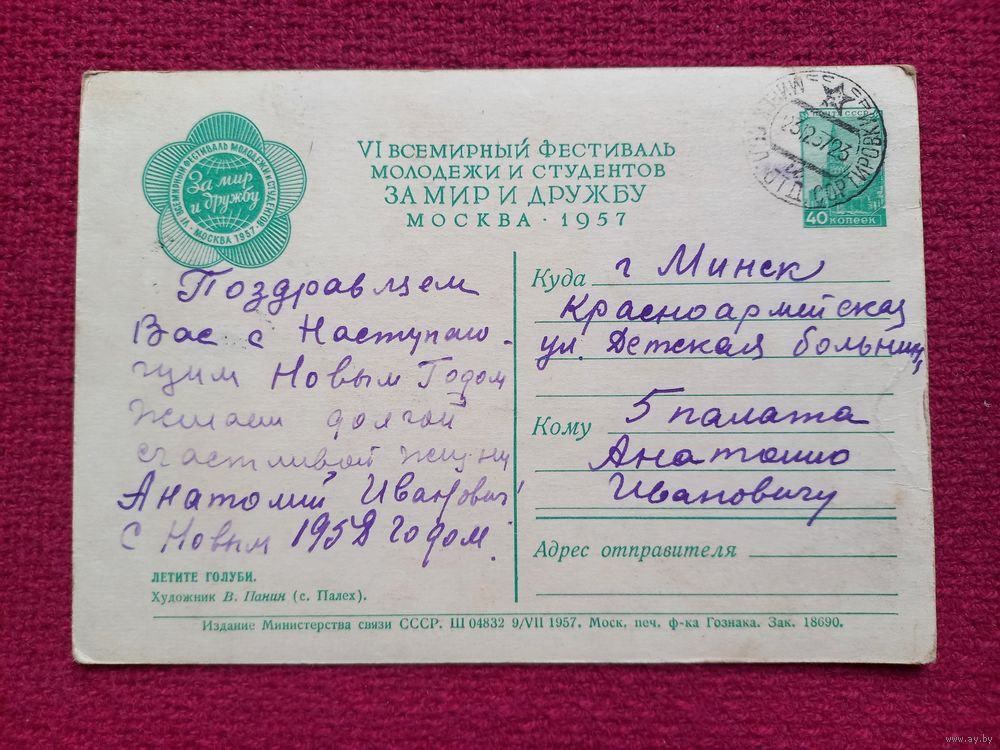 VI ВСЕМИРНЫЙ ФЕСТИВАЛЬ МОЛОДЕЖИ И СТУДЕНТОВ
За мир
и дружбу
МОСКВА 1957
VI ВСЕМИРНЫЙ ФЕСТИВАЛЬ
МОЛОДЕЖИ И СТУДЕНТОВ
ЗА МИР И ДРУЖБУ
МОСКВА · 1957
ПОЧТА СССР
40 КОПЕЕК
СОРТИРОВКИ
Поздравляем
Вас с Наступаю-
щим Новым Годом
Желаем долгой
счастливой жизни
Анатолий Иванович!
С Новым 1958 годом.
ЛЕТИТЕ ГОЛУБИ.
Художник В. Панин (с. Палех).
Куда г Минск
Красноармейская
ул. Детская больниц
Кому 5 палата
Анатолию
Ивановичу
Адрес отправителя
Издание Министерства связи СССР. Ш 04832 9/VII 1957. Моск. печ. ф-ка Гознака. Зак. 18690.
www.ay.by